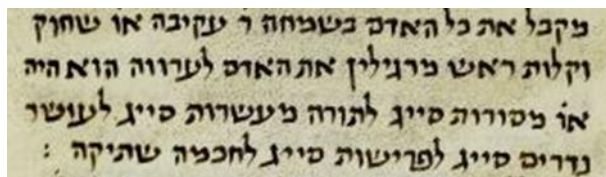 מקבל את כל האדם בשמחה ר עקיבה או שחוק
וקלות ראש מרגילין את האדם לערווה הוא היה
או מסורות סייג לתורה מעשרות סייג לעושר
נדרים סייג לפרישות סייג לחכמה שתיקה :